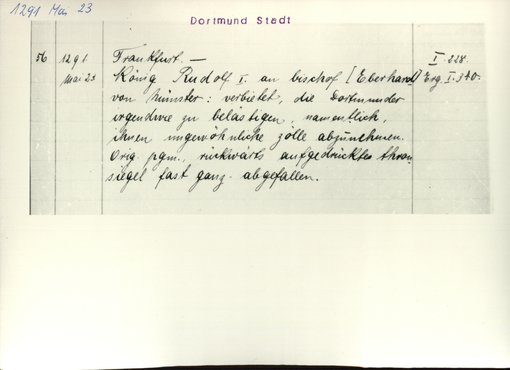 1291 Mai 23
Dortmund Stadt
56 1291 Frankfurt. — I. 228.
Mai 23 König Rudolf I. an bischof [Eberhardt] Erg. I. 340.
von Münster: verbietet, die Dortmunder
irgendwie zu belästigen, namentlich,
ihnen ungewöhnliche zölle abzunehmen.
Orig. pgm., rückwärts aufgedrücktes thron-
siegel fast ganz abgefallen.